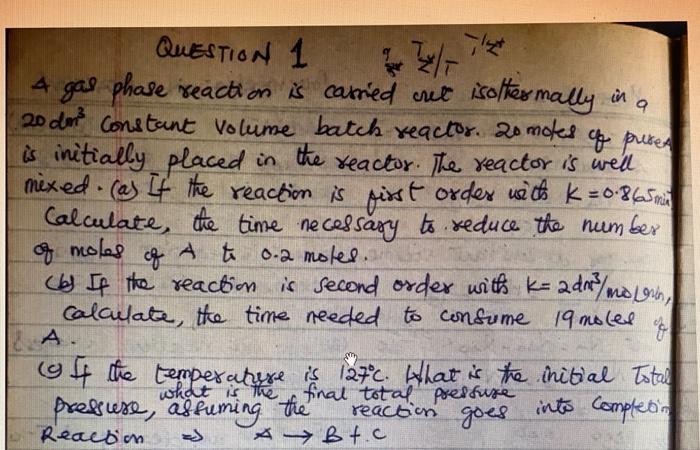 QUESTION 1
A gas phase reaction is carried out isothermally in a
20 dm³ constant volume batch reactor. 20 moles of pure A
is initially placed in the reactor. The reactor is well
mixed. (a) If the reaction is first order with K = 0.865 min
Calculate, the time necessary to reduce the number
of moles of A to 0.2 moles.
(b) If the reaction is second order with K = 2 dm³/mol min,
Calculate, the time needed to consume 19 moles of
A.
(c) If the temperature is 127°C. What is the initial Total
what is the final total pressure
pressure, assuming the reaction goes into completion
Reaction ⇒ A → B + C